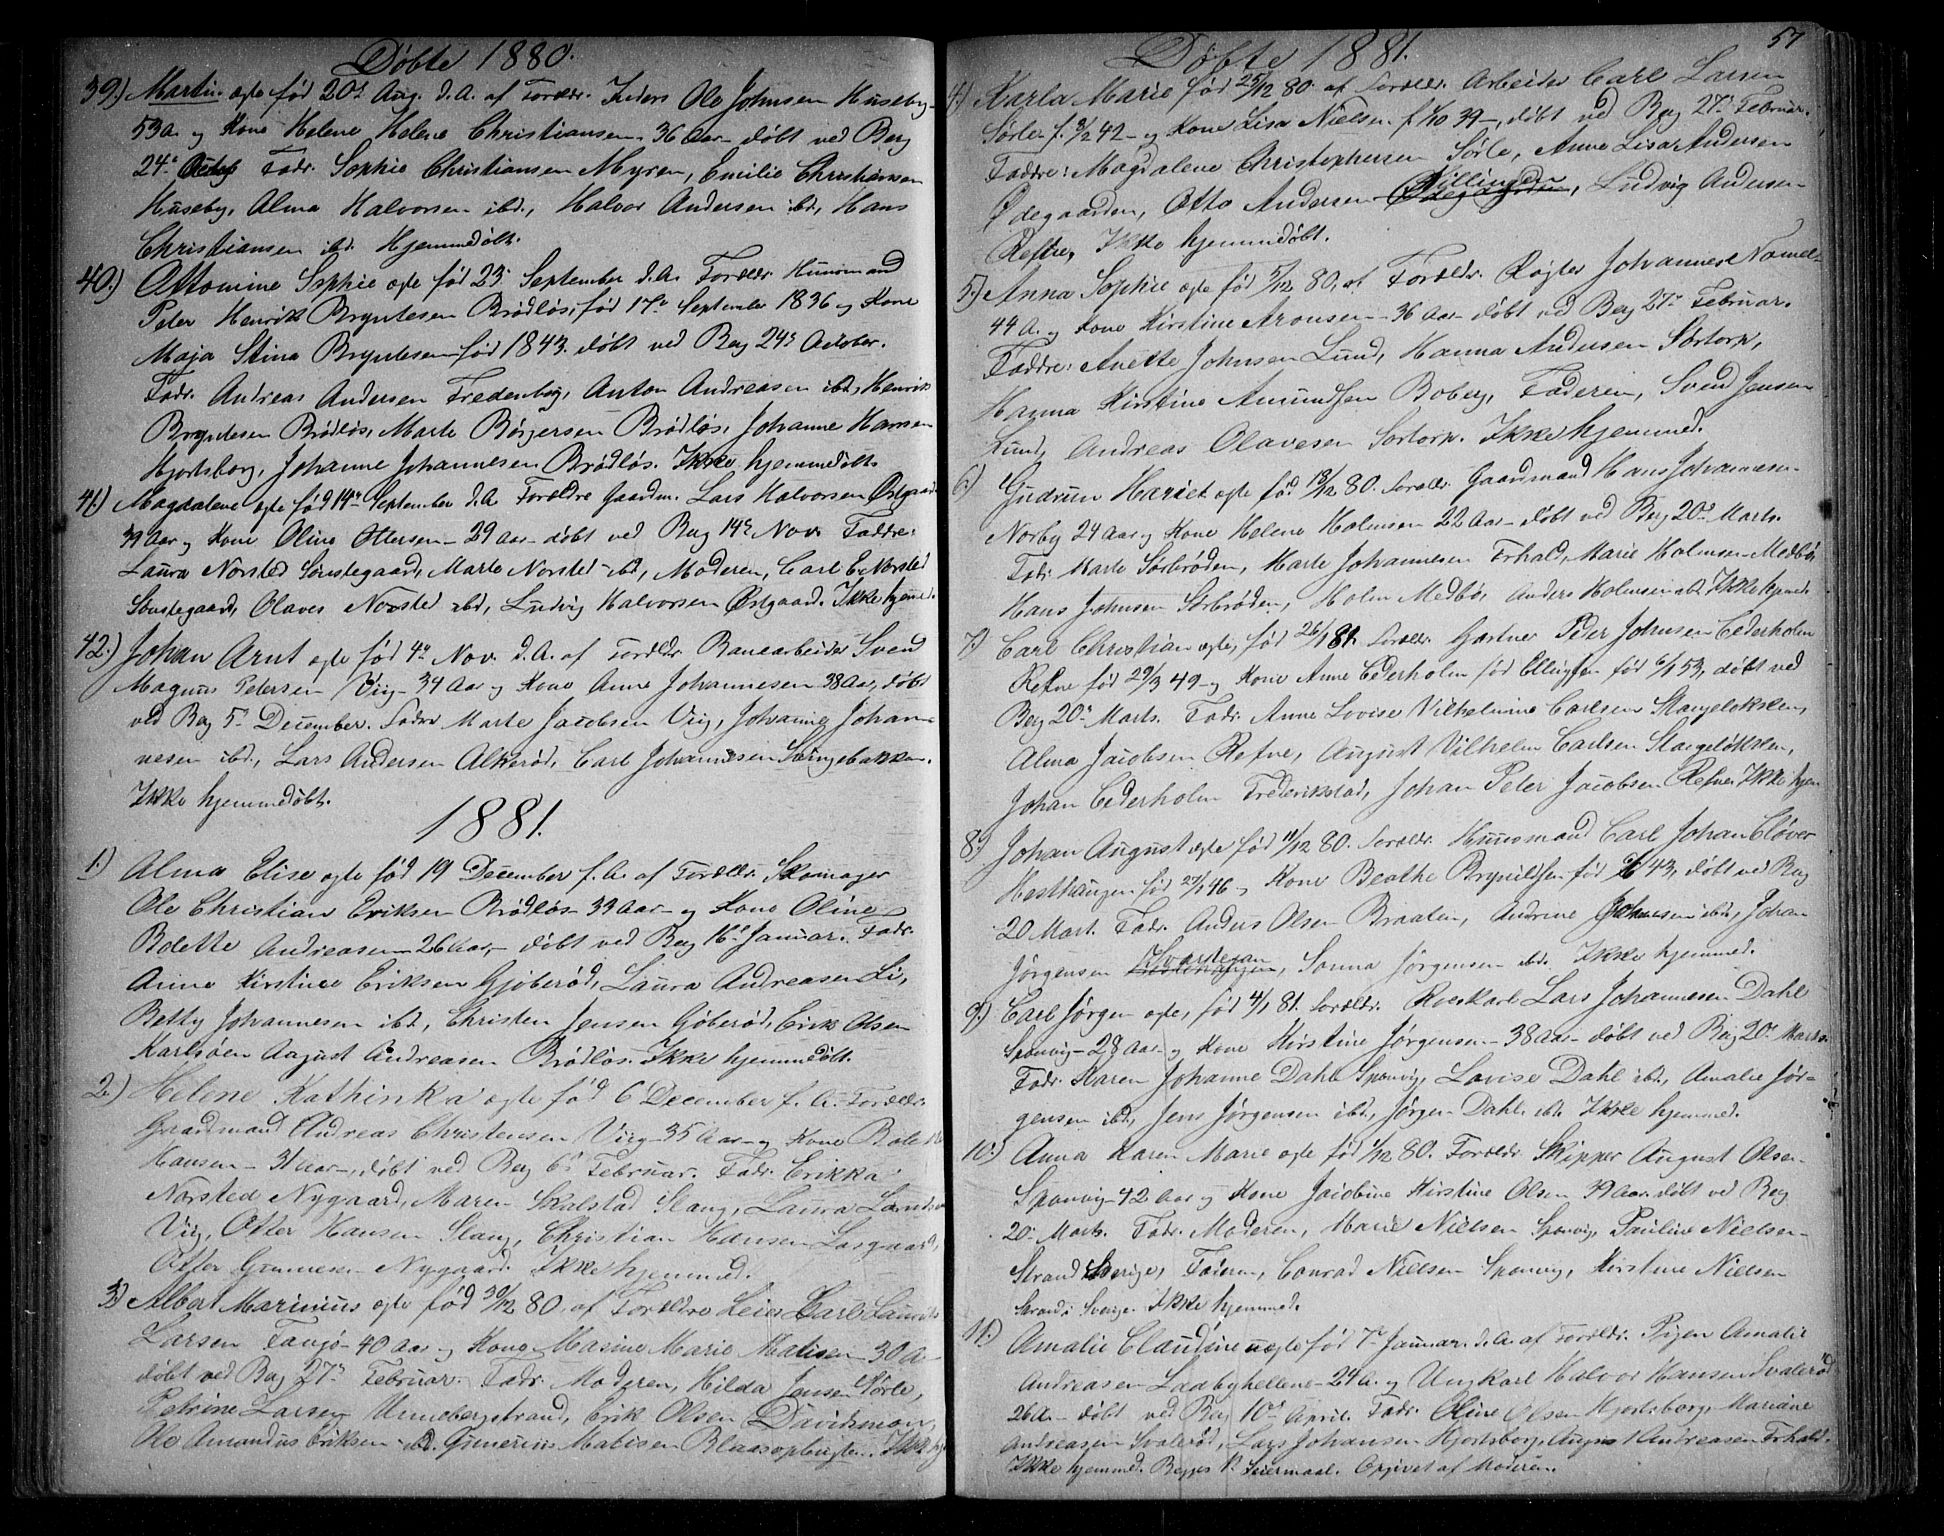 Døbte 1880.
39.) Martin ægte født 20de Aug. d.A. af Forældr. Inders Ole Johnsen Huseby
53 A. og Kone Helene Helene Christiansen 36 Aar døbt ved Berg
24de Fadr. Sophie Christiansen Myren, Emilie Christiansen
Huseby, Alma Halvorsen ibd., Halvor Andersen ibd., Hans
Christiansen ibd. Hjemmedøbt.
40.) Ottomine Sophie ægte født 23. September d.A. Forældr. Huusmand
Peter Henrik Bryntesen Brødløs, født 17de September 1836 og Kone
Maja Stina Bryntesen født 1843. døbt ved Berg 24de October.
Fadr. Andreas Andersen Fredenberg, Anton Andreasen ibd., Henrik
Bryntesen Brødløs, Marte Børjersen Brødløs, Johanne Hansen
Hjortsberg, Johanne Johannesen Brødløs. Ikke hjemmedøbt.
41.) Magdalene ægte født 14de September d.A. Forældre Gaardm. Lars Halvorsen Østgaard
39 Aar og Kone Oline Ottersen - 29 Aar - døbt ved Berg 14de Nov. Faddre:
Laura Norsted Sønstegaard, Marte Norsted ibd., Moderen, Carl E. Norsted
Sønstegaard, Olaves Norsted ibd., Ludvig Halvorsen Østgaard. Ikke hjemmed.
42.) Johan Arnt ægte født 4de Nov. d.A. af Forældr. Banearbeider Svend
Magnus Petersen Viig - 34 Aar og Kone Anne Johannesen 38 Aar, døbt
ved Berg 5te December. Fadr. Marte Jacobsen Viig, Johanne Johan-
nesen ibd., Lars Andersen Alkerød, Carl Johannesen Sæingebakken.
Ikke hjemmedøbt.
1881.
1.) Alma Elise ægte født 19 December f.A. af Forældr. Skomager
Ole Christian Eriksen Brødløs 39 Aar og Kone Oline
Bolette Andreasen 26 Aar, døbt ved Berg 16de Januar. Fadr.
Anne Kirstine Eriksen Gjøberød, Laura Andreasen Li,
Betty Johannesen ibd., Christen Jensen Gøberød, Erik Olsen
Karlsøen August Andreasen Brødløs. Ikke hjemmedøbt.
2.) Helene Kathinka ægte født 6 December f.A. Forældr.
Gaardmand Andreas Christensen Viig 35 Aar og Kone Bolette
Hansen - 31 Aar, døbt ved Berg 6te Februar. Fadr. Erikka
Norsted Nygaard, Maren Skalstad Stang, Laura
Viig, Otter Hansen Stang, Christian Hansen
Otter Gunnesen Nygaard. Ikke hjemmed.
3.) Albert Marinius ægte født 30/12 80. af Forældre Leier Carl Laurits
Larsen Tangø 40 Aar og Kone Marine Marie Matisen 30 A.
døbt ved Berg 27de Februar. Fadr. Moderen, Hilda Jensen Sørle,
Petrine Larsen Unnebergstrand, Erik Olsen Davidsmon,
Ole Amandus Eriksen ibd. Gunerius Matisen Blaasopbugten. Ikke hj.
57
Døbte 1881.
4.) Karla Marie født 25/12 80. af Forældr. Arbeider Carl Larsen
Sørle f. 3/2 42 - og Kone Lisa Nielsen f. 1/10 39 -, døbt ved Berg 27de Februar.
Faddre: Magdalene Christophersen Sørle, Anne Lisa Andersen
Ødegaarden, Otto Andersen Ødegaarden Killingen, Ludvig Andersen
Refne, Ikke hjemmedøbt.
5.) Anna Sophie ægte født 5/12 80. af Forældr. Røgter Johannes
44 A. og Kone Kirstine Aronsen 36 Aar døbt ved Berg 27de Februar.
Faddre: Anette Johnsen Lund, Hanna Andersen Sørtorp,
Hanna Kirstine Amundsen Boberg, Faderen, Svend Jensen
Lund, Andreas Olavesen Sørtorp. Ikke hjemmed.
6.) Gudrun Hariet ægte født 13/12 80. Forældr. Gaardmand Hans Johannesen
Norby 24 Aar og Kone Helene Holmsen 22 Aar døbt ved Berg 20de Marts.
Fadr. Marte Sørbrøden, Marte Johannesen Erhald, Marie Holmsen Medbø
Hans Johnsen Sørbrøden, Holm Medbø, Anders Holmsen ibd. Ikke hjemd.
7.) Carl Christian ægte, født 26/1 81. Forældr. Gartner Peter Johnsen Cederholm
Refne født 29/3 49 - og Kone Anne Cederholm født Ellingsen født 6/1 53, døbt ved
Berg 20de Marts. Fadr. Anne Lovise Vilhelmine Carlsen Stangeløkken,
Alma Jacobsen Refne, August Vilhelm Carlsen Stangeløkken,
Johan Cederholm Frederikstad, Johan Peter Jacobsen Refne. Ikke hjem
8.) Johan August ægte født 11/12 80. Forældr. Huusmand Carl Johan Cløver
Hesthaugen født 27/1 46 og Kone Beathe Brynildsen født 43, døbt ved Berg
20 Mart. Fadr. Anders Olsen Braaten, Andrine Johansen ibd., Johan
Jørgensen Kvartejan, Sanna Jørgensen ibd. Ikke hjemmed.
9.) Carl Jørgen ægte, født 4/1 81. Forældr. Roeskarl Lars Johannesen Dahl
Sponvig 28 Aar og Kone Kirstine Jørgensen 38 Aar døbt ved Berg 20de Marts.
Fadr. Karen Johanne Dahl Sponvig, Lovise Dahl ibd., Amalie Jør-
gensen ibd., Jens Jørgensen ibd., Jørgen Dahl ibd. Ikke hjemmed.
10.) Anna Karen Marie ægte født 1/12 80. Forældr. Skipper August Olsen
Sponvig 42 Aar og Kone Jacobine Kirstine Olsen 39 Aar døbt ved Berg
20de Marts. Fadr. Moderen, Marie Nielsen Sponvig, Pauline Nielsen
Strand Sverige, Faderen, Conrad Nielsen Sponvig, Kirstine Nielsen
Strand i Sverige. Ikke hjemmed.
11.) Amalie Claudine uægte født 7de Januar d.A. af Forældr. Pigen Amalie
Andreasen Laabyhellene 24 A. og Ungkarl Halvor Hansen Svalerød
26 A. døbt ved Berg 10de April. Fadr. Oline Olsen Hjortsberg, Mariane
Andreasen Svalerød, Lars Johansen Hjortsberg, August Andreasen Erhald.
Ikke hjemmed. Begges 1ste Leiermaal. Opgivet af Moderen.